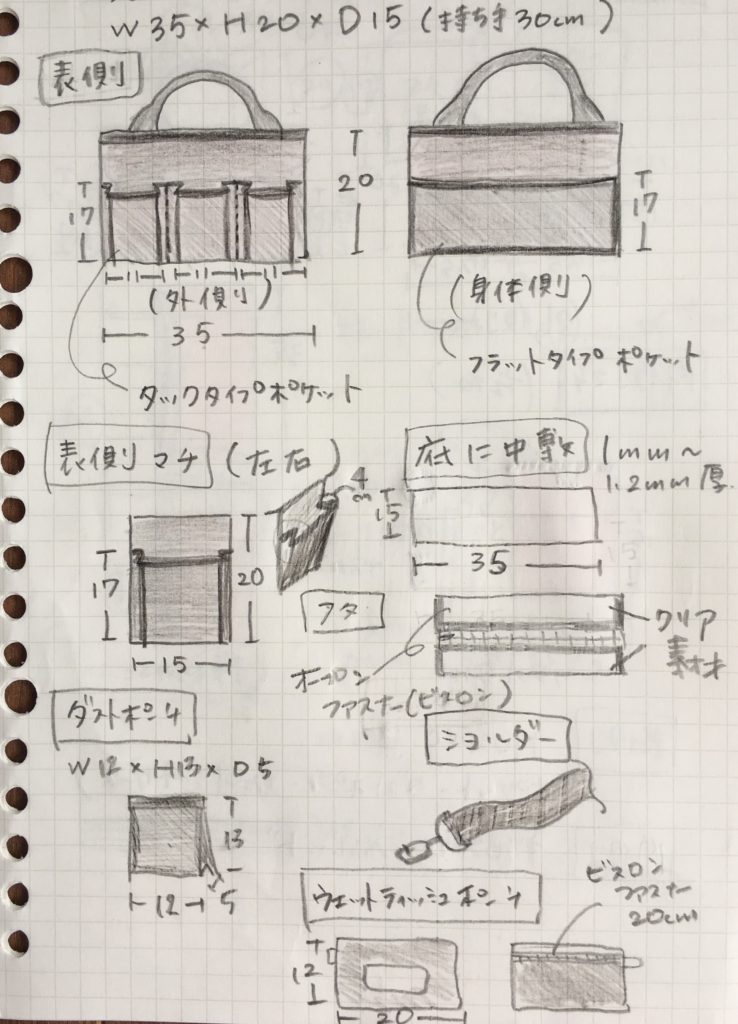 W35×H20×D15(持ち手30cm)
表側
T
20
T
17
T
17
11 11 11
(外側)
(身体側)
35
フラットタイプポケット
タックタイプポケット
表側マチ(左右)
底に中敷
1mm～
1.2mm厚
4
cm
T
15
T
17
T
20
35
フタ
クリア
素材
15
オープン
ファスナー(ビスロン)
ダストポーチ
ショルダー
W12×H13×D5
T
13
12
5
ウェットティッシュポーチ
ビスロン
ファスナー
20cm
T
12
20